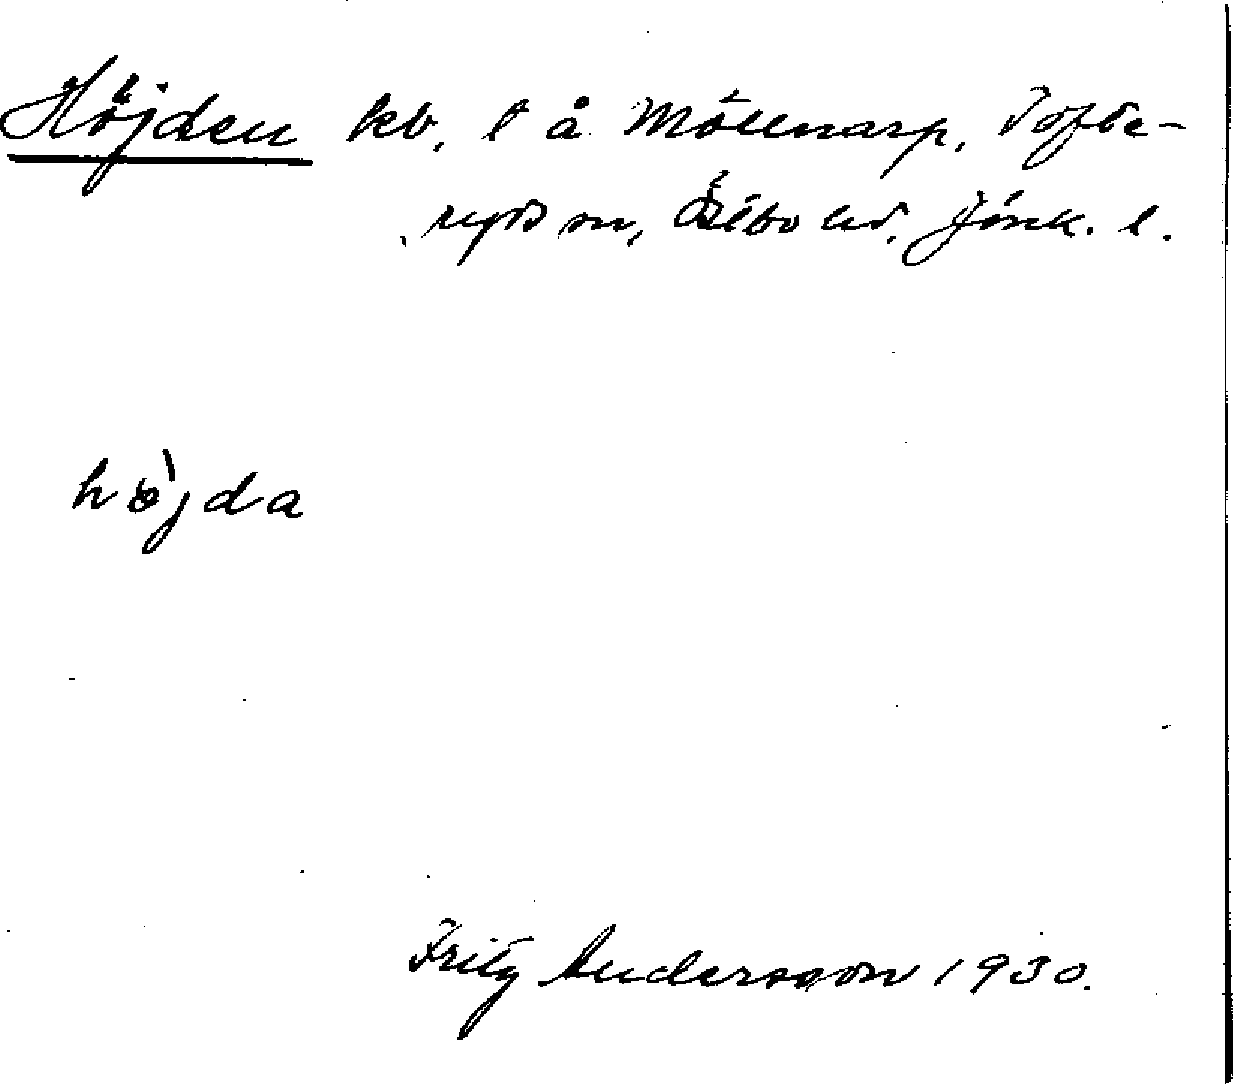 Höjden kb, l å Möllnarp, Tofte-
ryds sn, Östbo hd, Jönk. l.
höjda
Fritz Andersson 1930.